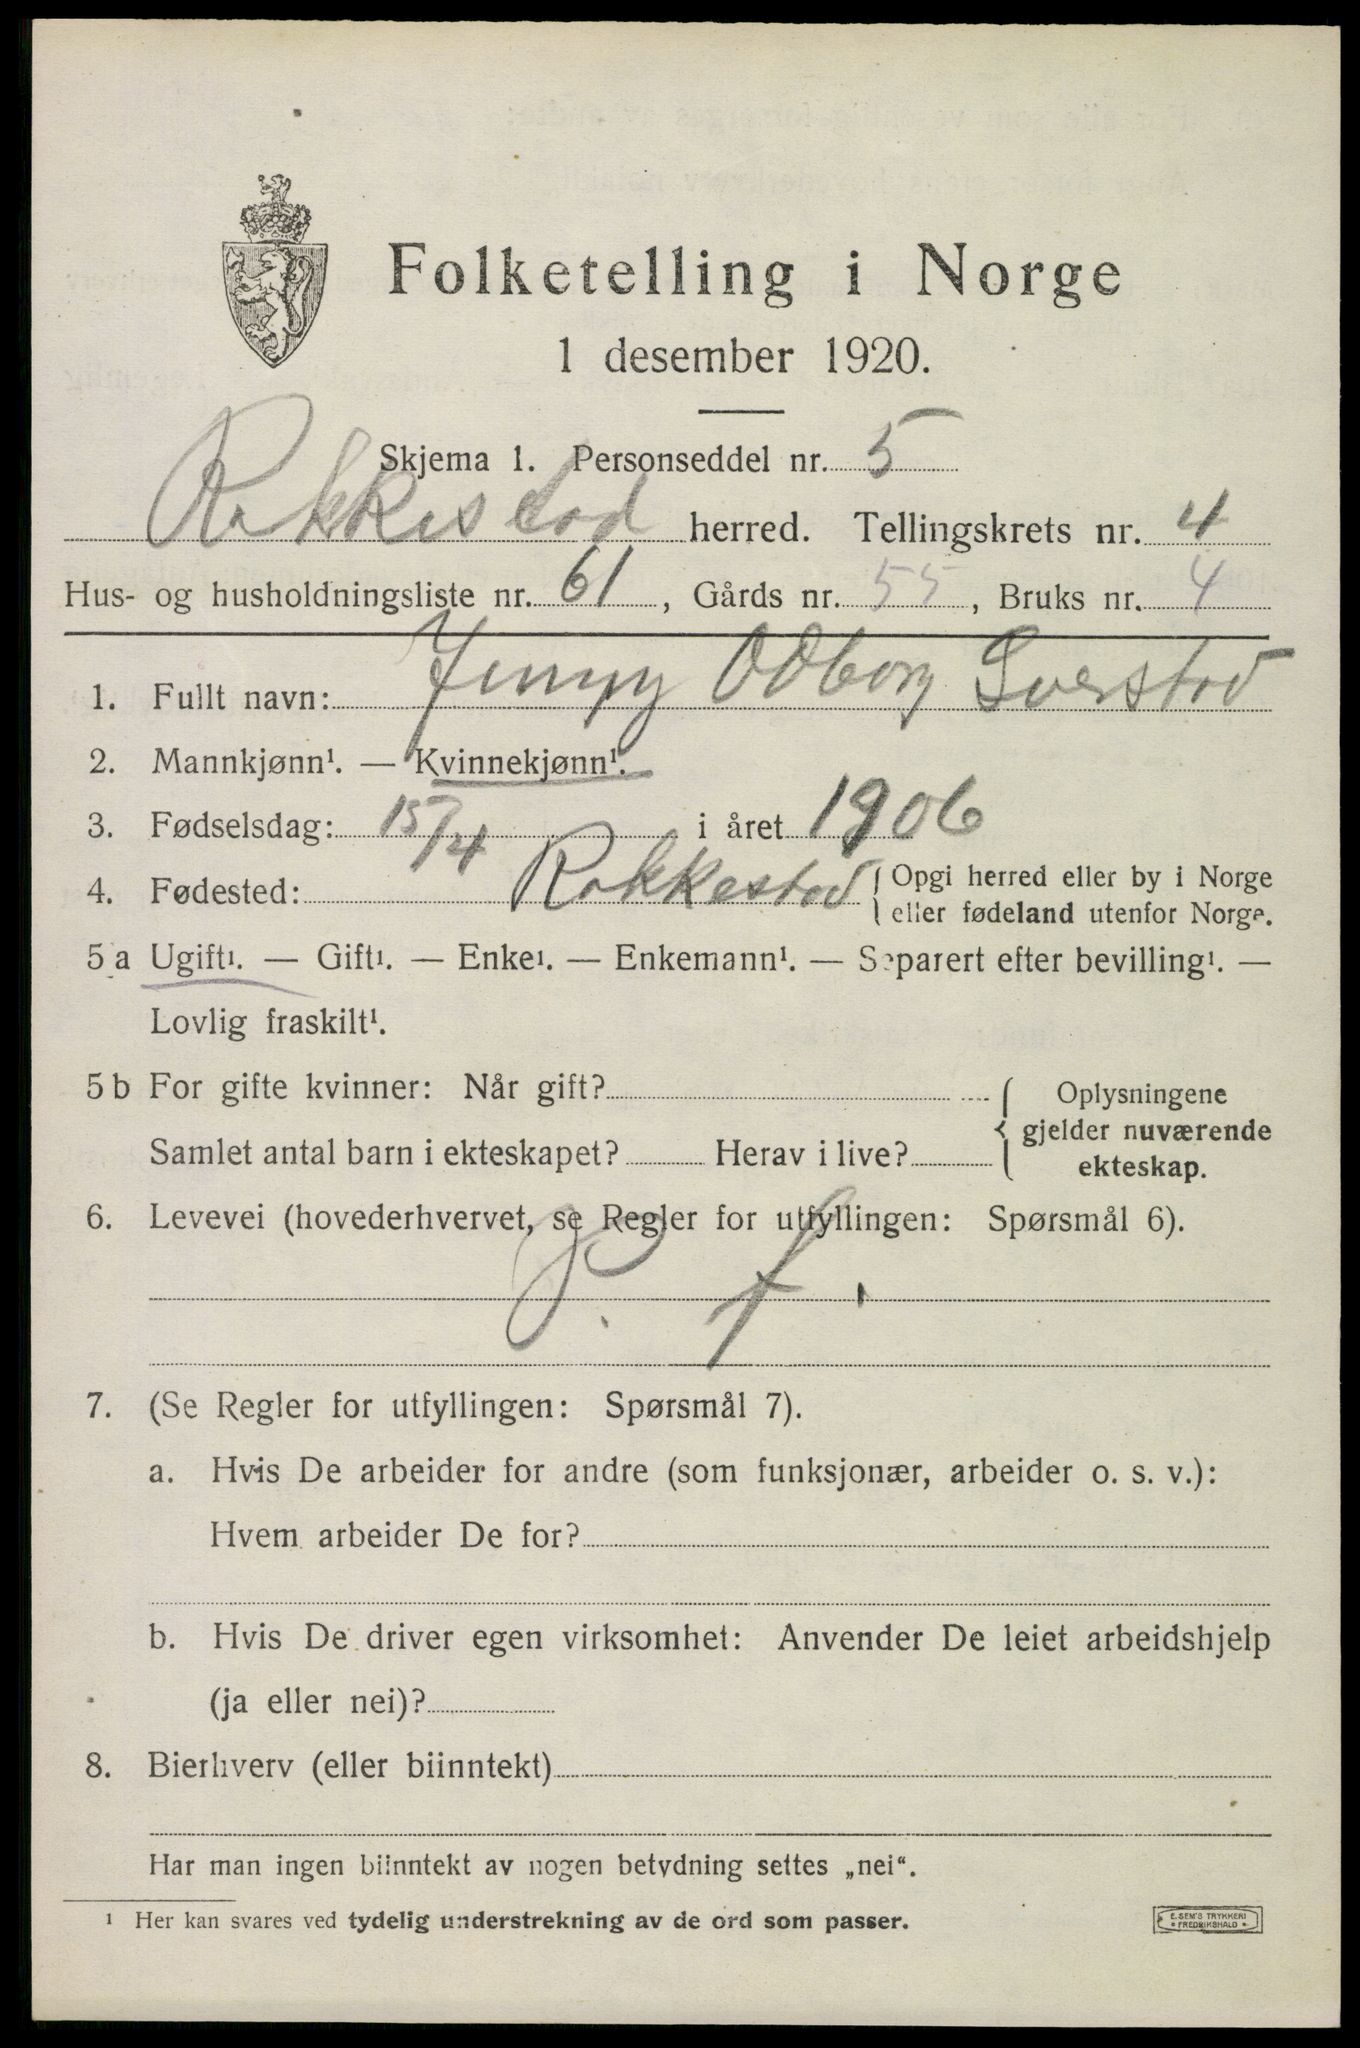 Folketelling i Norge
1 desember 1920.
Skjema 1. Personseddel nr. 5
Rakkestad herred. Tellingskrets nr. 4
Hus- og husholdningsliste nr. 61, Gårds nr. 55, Bruks nr. 4
1. Fullt navn: Jenny Odborg Sverstad
2. Mannkjønn¹. — Kvinnekjønn¹.
3. Fødselsdag: 15/4 i året 1906
4. Fødested: Rakkestad { Opgi herred eller by i Norge
eller fødeland utenfor Norge.
5 a Ugift¹. — Gift¹. — Enke¹. — Enkemann¹. — Separert efter bevilling¹. —
Lovlig fraskilt¹.
5 b For gifte kvinner: Når gift?
Samlet antal barn i ekteskapet? Herav i live?
Oplysningene
gjelder nuværende
ekteskap.
6. Levevei (hovederhvervet, se Regler for utfyllingen: Spørsmål 6).
7. (Se Regler for utfyllingen: Spørsmål 7).
a. Hvis De arbeider for andre (som funksjonær, arbeider o. s. v.):
Hvem arbeider De for?
b. Hvis De driver egen virksomhet: Anvender De leiet arbeidshjelp
(ja eller nei)?
8. Bierhverv (eller biinntekt)
Har man ingen biinntekt av nogen betydning settes „nei“.
¹ Her kan svares ved tydelig understrekning av de ord som passer.
E. SEM'S TRYKKERI
FREDRIKSHALD